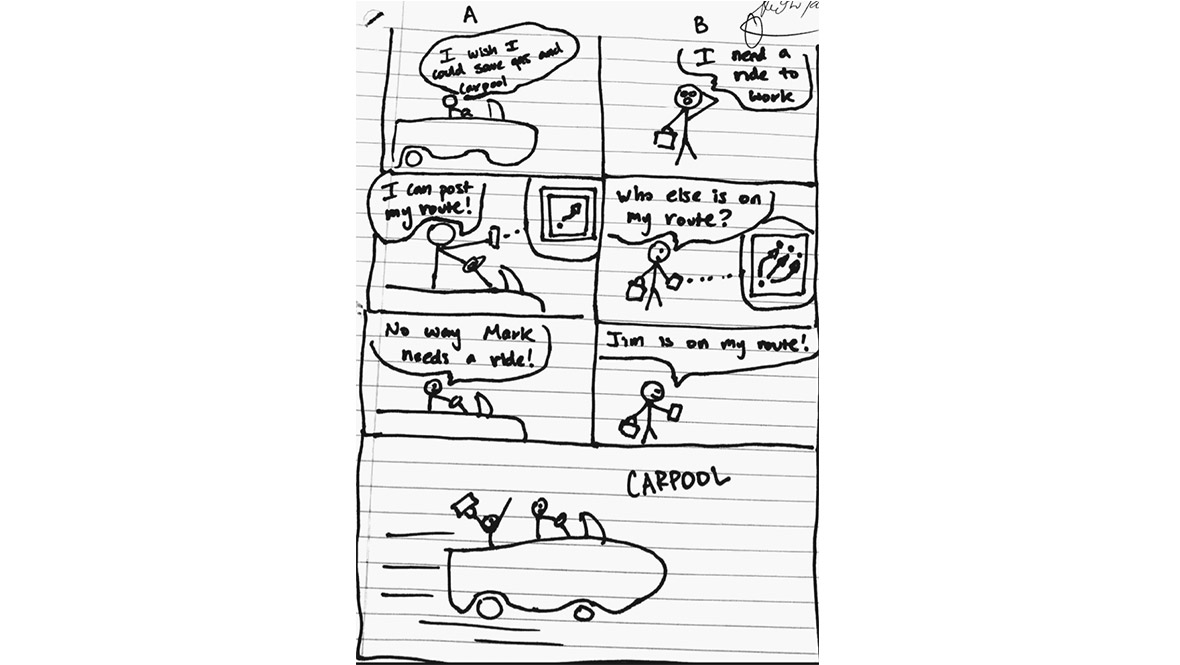 A
B
I wish I
could save gas and
carpool
I need a
ride to
work
I can post
my route!
Who else is on
my route?
No way Mark
needs a ride!
Jim is on my route!
CARPOOL